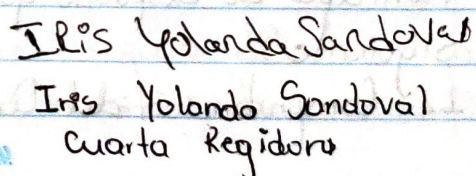 IRis Yolanda Sandoval
Iris Yolando Sandoval
Cuarta Regidora